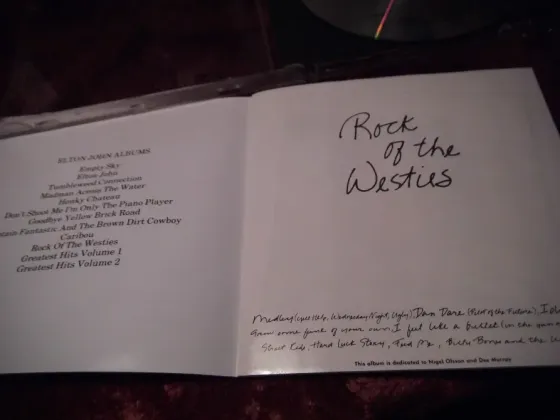 ELTON JOHN ALBUMS
Empty Sky
Elton John
Tumbleweed Connection
Madman Across The Water
Honky Chateau
Don't Shoot Me I'm Only The Piano Player
Goodbye Yellow Brick Road
Fantastic And The Brown Dirt Cowboy
Caribou
Rock Of The Westies
Greatest Hits Volume 1
Greatest Hits Volume 2
Rock
of the
Westies
Medley (Yell Help, Wednesday Night, Ugly), Dan Dare (Pilot of the Future), I
some gane of your own, I feel like a bullet (in the gun
Street Kids, Hard Luck Story, Feed Me, Billy Bones and the
This album is dedicated to Nigel Olsson and Dee Murray